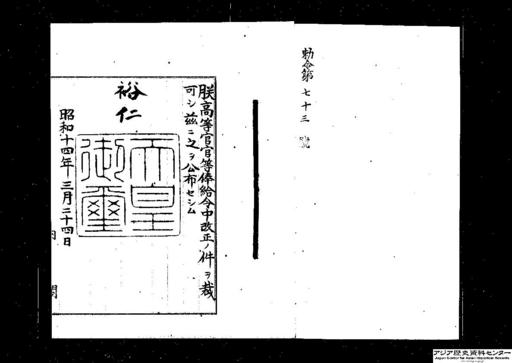 勅令第七十三號
朕高等官官等俸給令中改正ノ件ヲ裁
可シ茲ニ之ヲ公布セシム
裕仁
天皇御璽
昭和十四年三月二十四日
内閣
アジア歴史資料センター
Japan Center for Asian Historical Records